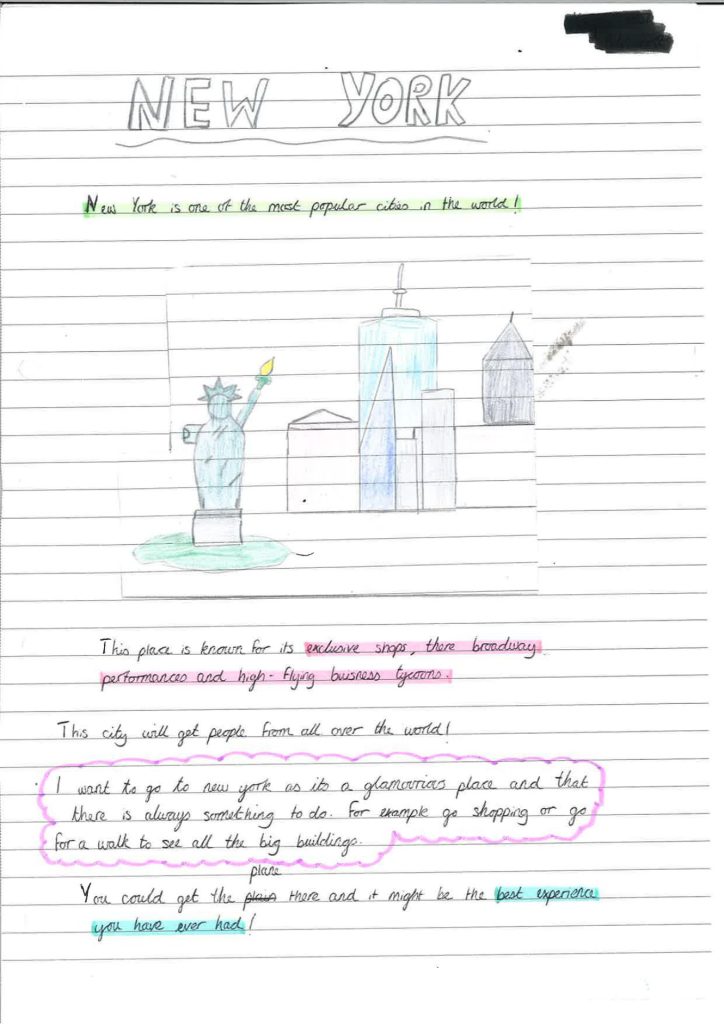 NEW YORK
New York is one of the most popular cities in the world!
This place is known for its exclusive shops, there broadway
performances and high-flying buisness tycoons.
This city will get people from all over the world!
I want to go to new york as its a glamourios place and that
there is always something to do. For example go shopping or go
for a walk to see all the big buildings.
plane
You could get the plain there and it might be the best experience
you have ever had!